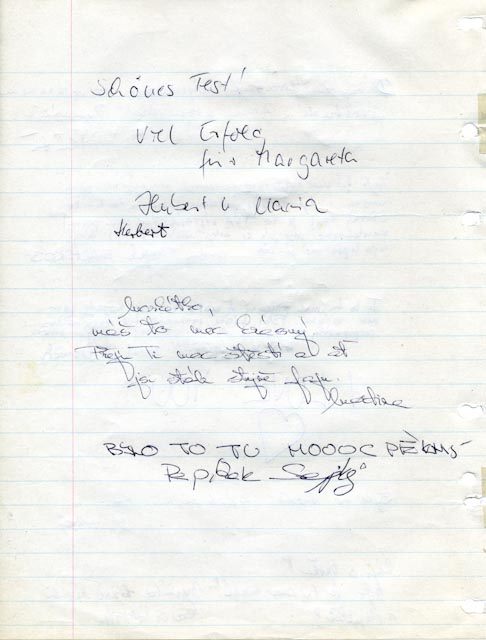 Schönes Fest!
Viel Erfolg
für Margareta
Herbert u Maria
Herbert
Markétko,
máš to moc krásný
Přeju Ti moc štěstí a ať
jsi stále stejně fajn.
Martina
BYLO TO TU MOOOC PĚKNÝ
Pepíček